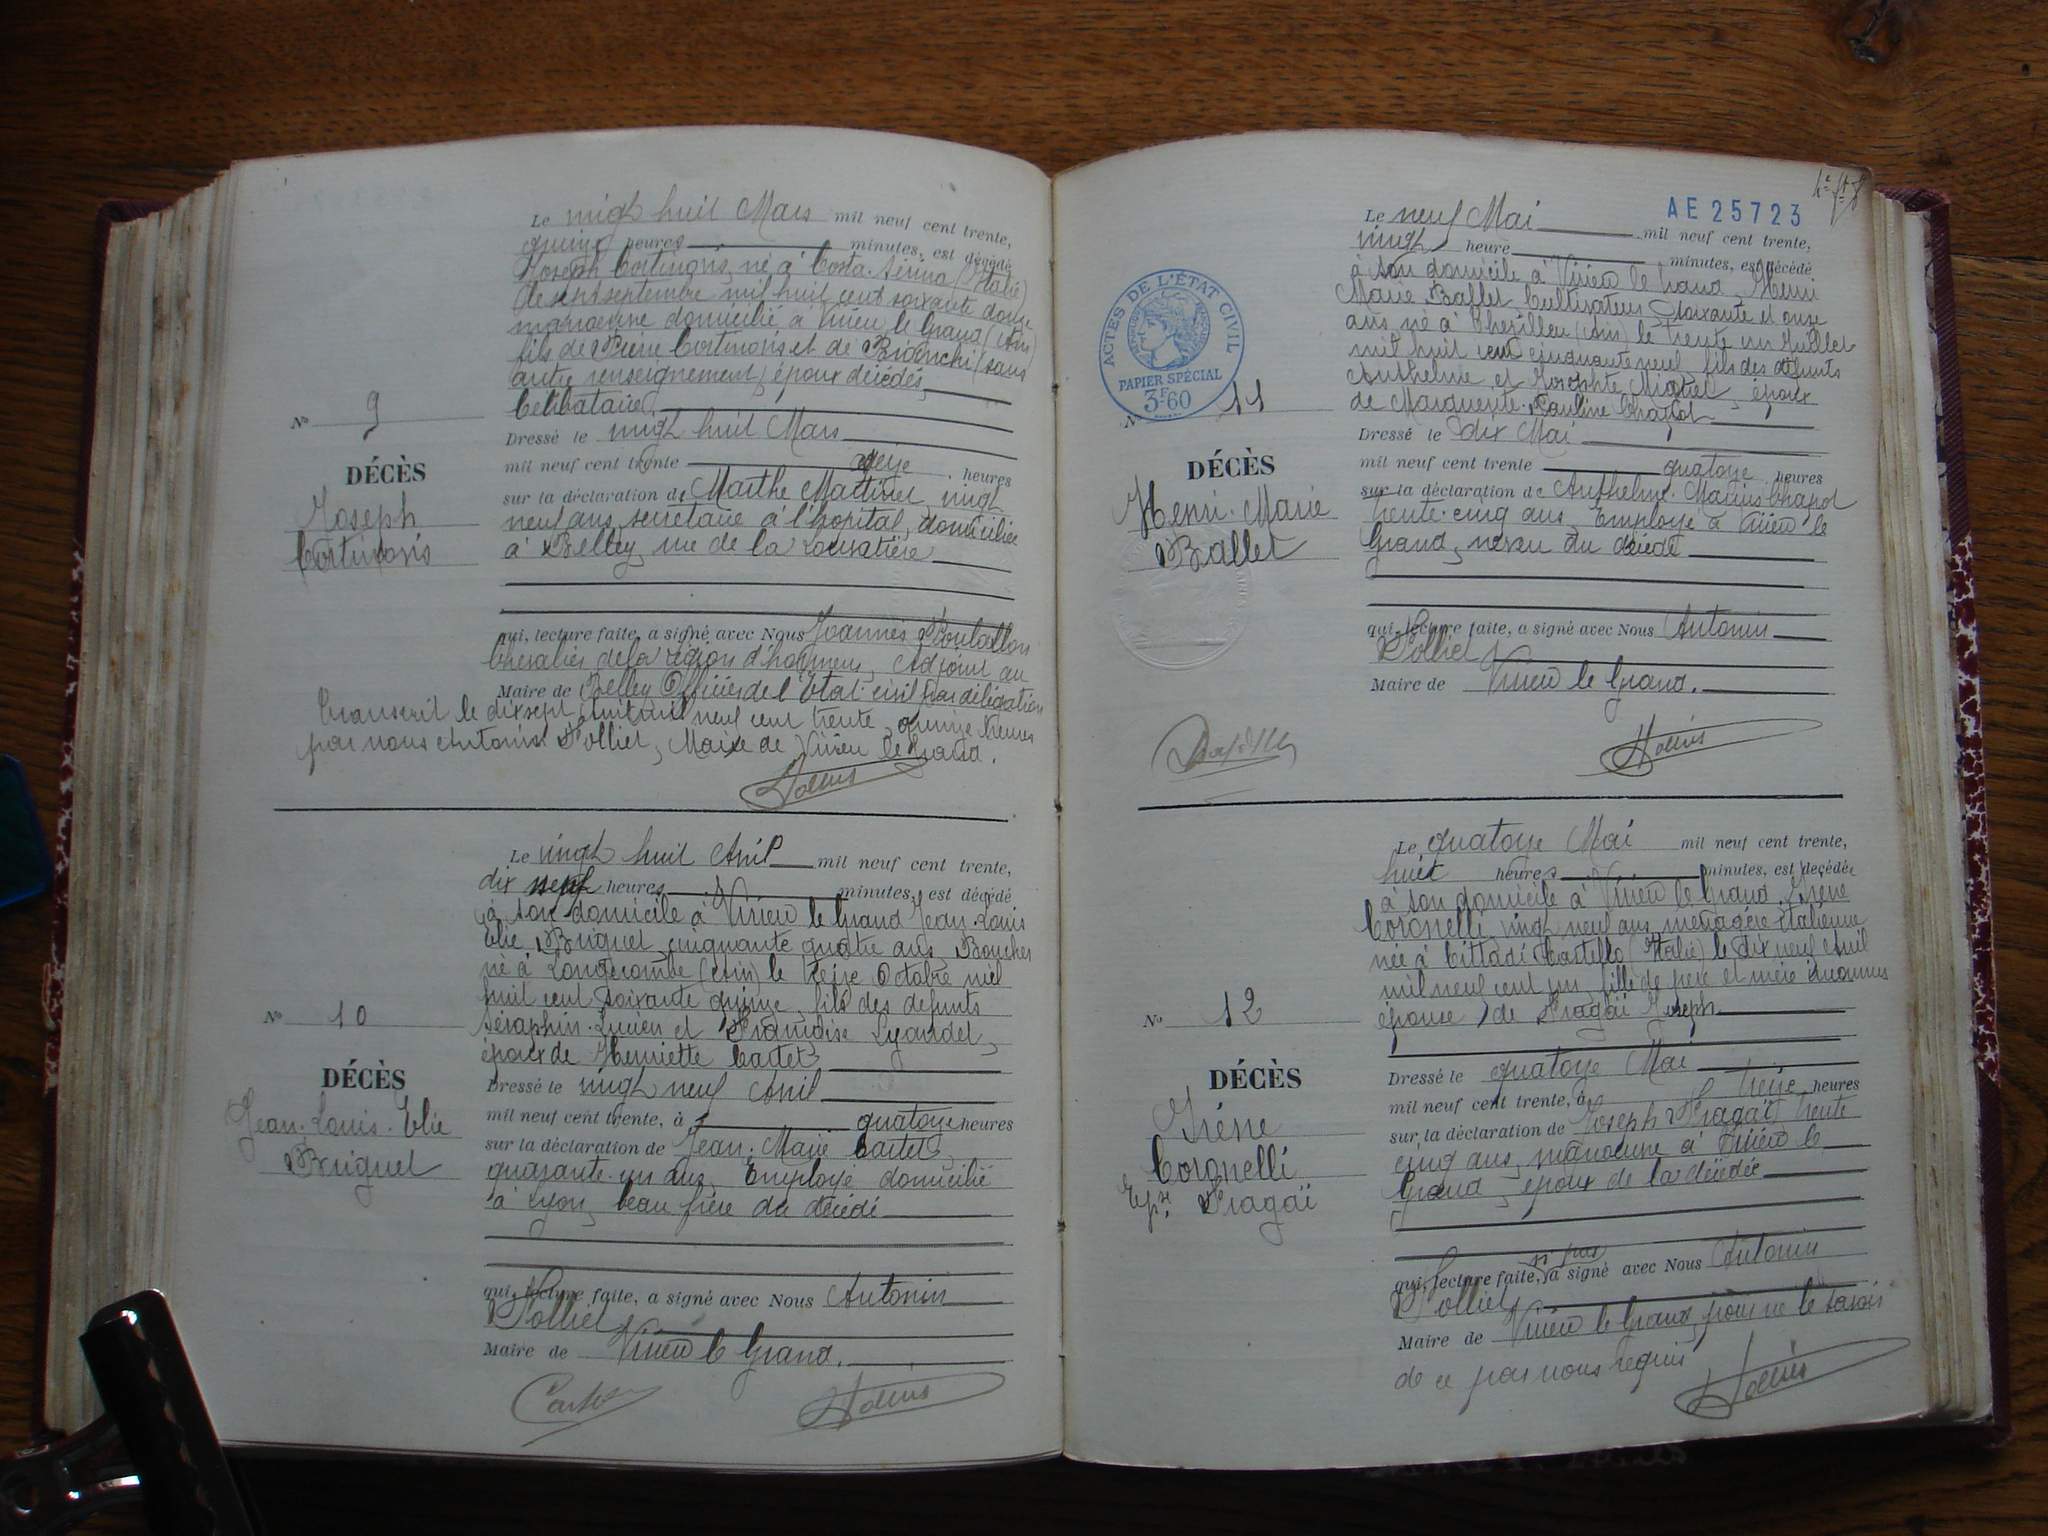 Le vingt huit Mars mil neuf cent trente,
quinze heures minutes, est décédé
Joseph Cortinovis, né à Costa Serina (Italie)
le sept septembre mil huit cent soixante douze
manoeuvre domicilié à Virieu le Grand (Ain)
fils de Pierre Cortinovis et de Bianchi (sans
autre renseignement) époux décédés,
Célibataire
N° 9
DÉCÈS
Joseph
Cortinovis
Dressé le vingt huit Mars
mil neuf cent trente seize heures
sur la déclaration de Marthe Martinet, vingt
neuf ans, secrétaire à l'hopital, domiciliée
à Belley, rue de la
qui, lecture faite, a signé avec Nous Joannès
Chevalier de la légion d'honneur, Adjoint au
Maire de Belley Officier de l'Etat civil par délégation
Transcrit le dix sept Avril mil neuf cent trente, quinze heures
par nous Antonin Pollier, Maire de Virieu le Grand.
Le vingt huit Avril mil neuf cent trente,
dix neuf heures minutes, est décédé
à son domicile à Virieu le Grand Jean Louis
Elie Briguet, cinquante quatre ans, Boucher
né à Longecombe (Ain) le treize Octobre mil
huit cent soixante quinze, fils des defunts
Séraphin Lucien et Françoise Lyaudet,
époux de Henriette Cartet,
N° 10
DÉCÈS
Jean Louis Elie
Briguet
Dressé le vingt neuf Avril
mil neuf cent trente, à quatorze heures
sur la déclaration de Jean Marie Cartet,
quarante un ans, Employé domicilié
à Lyon, beau frère du décédé
qui, lecture faite, a signé avec Nous Antonin
Pollier
Maire de Virieu le Grand.
AE 25723
ACTES DE L'ÉTAT CIVIL
PAPIER SPÉCIAL
3F60
Le neuf Mai mil neuf cent trente,
vingt heure minutes, est décédé
à son domicile à Virieu le Grand Henri
Marie Ballet Cultivateur Soixante et onze
ans, né à Chezilleu (Ain) le trente un Juillet
mil huit cent cinquante neuf fils des défunts
Anthelme et Josephte époux
de Marguerite Pauline Chapot
N° 11
DÉCÈS
Henri Marie
Ballet
Dressé le dix Mai
mil neuf cent trente quatorze heures
sur la déclaration de Anthelme Marius Chapot
trente cinq ans, Employé à Virieu le
Grand, neveu du décédé
qui, lecture faite, a signé avec Nous Antonin
Pollier
Maire de Virieu le Grand.
Le quatorze Mai mil neuf cent trente,
huit heures minutes, est décédée
à son domicile à Virieu le Grand Irène
Coronelli, vingt neuf ans, ménagère italienne
née à Cittadi Castello (Italie) le dix neuf Avril
mil neuf cent un, fille de père et mère inconnus
épouse de Fragaï Joseph
N° 12
DÉCÈS
Irène
Coronelli
Ep.se Fragaï
Dressé le quatorze Mai
mil neuf cent trente, à treize heures
sur la déclaration de Joseph Fragaï trente
cinq ans, manoeuvre à Virieu le
Grand, époux de la décédée
qui, lecture faite, n' a pas signé avec Nous Antonin
Pollier
Maire de Virieu le Grand, pour ne le savoir
de ce par nous requis